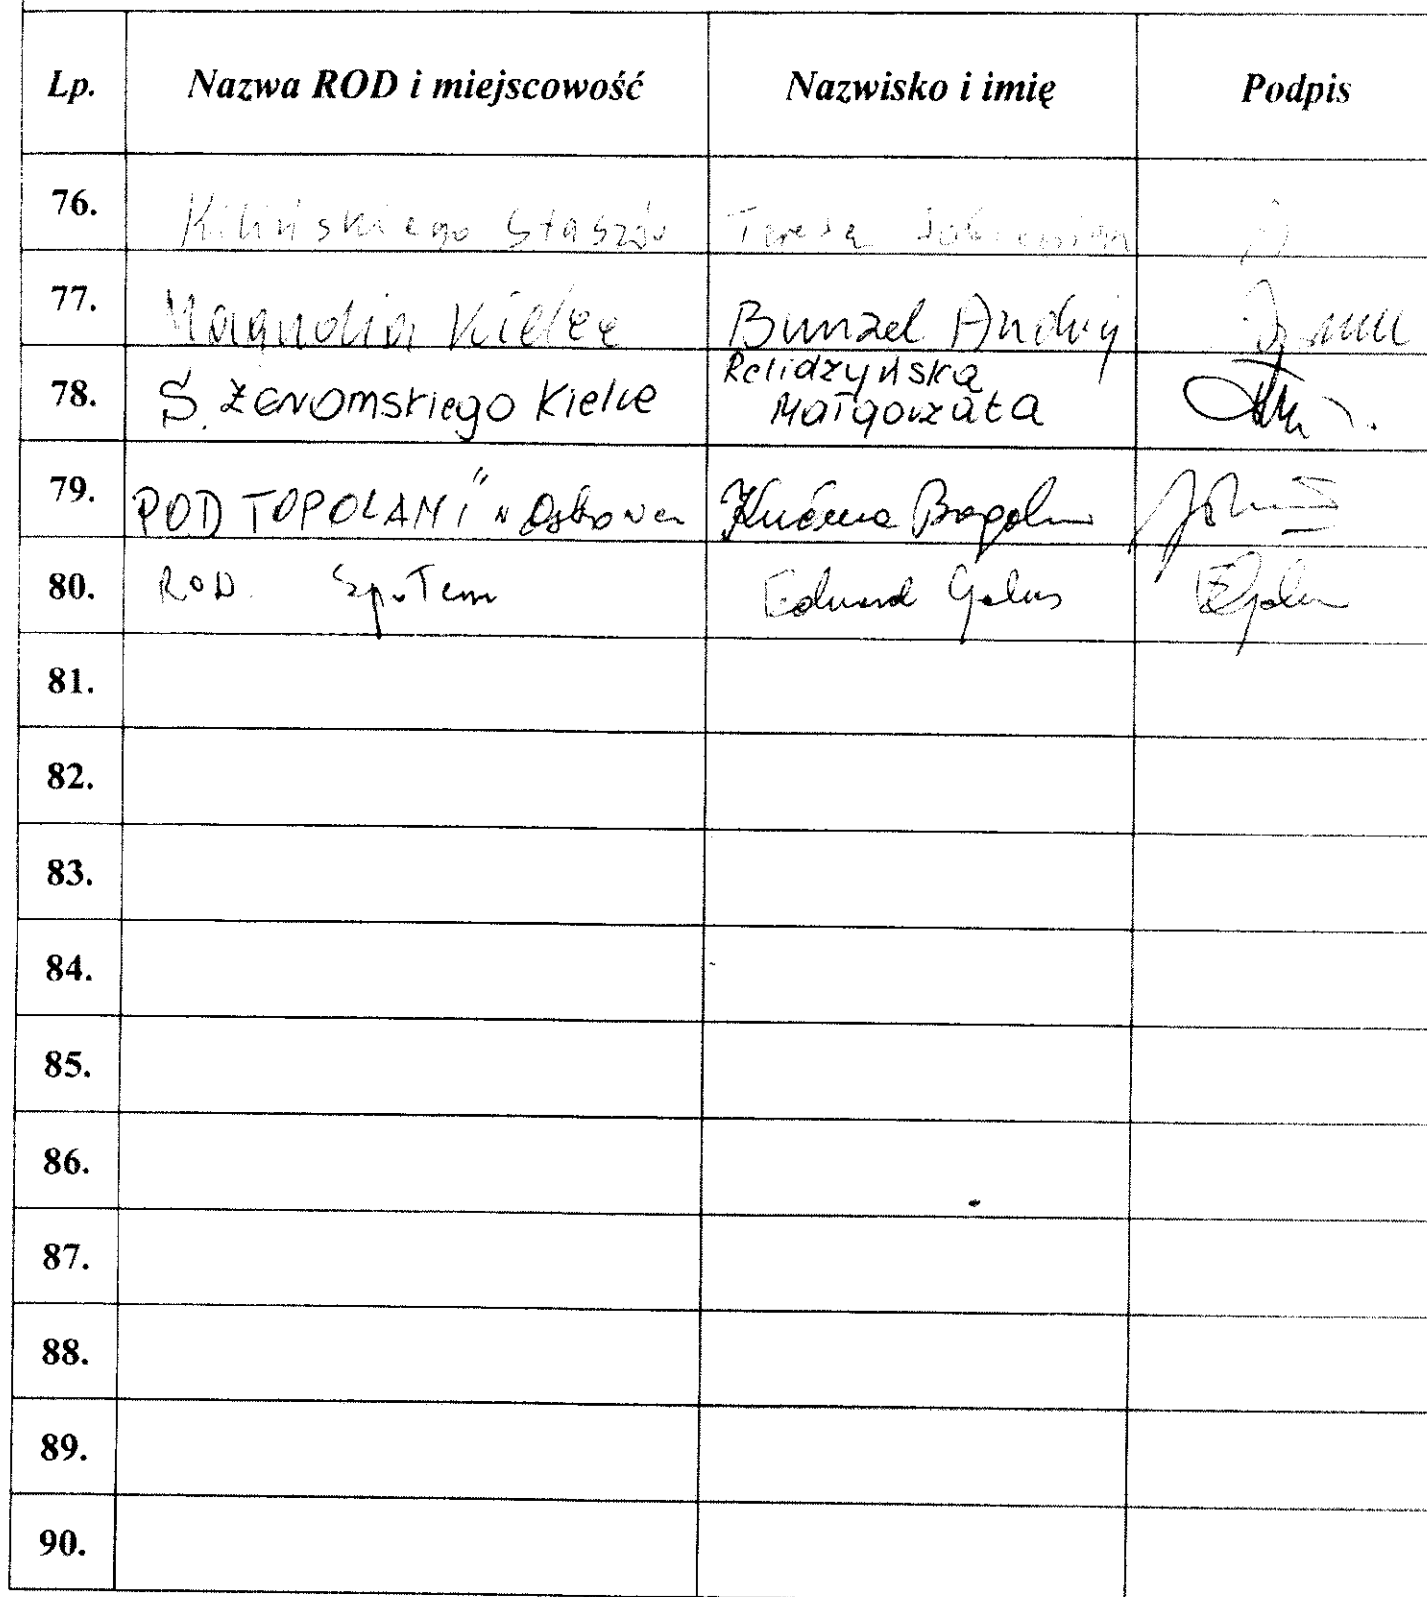 Lp. Nazwa ROD i miejscowość Nazwisko i imię Podpis
76. Kilińskiego Staszów Teresa
77. Magnolia Kielce Bunzel Andrzej
78. S. Żeromskiego Kielce Relidzyńska
Małgorzata
79. POD TOPOLAMI"
80. ROD. Społem Edward Galus
81.
82.
83.
84.
85.
86.
87.
88.
89.
90.